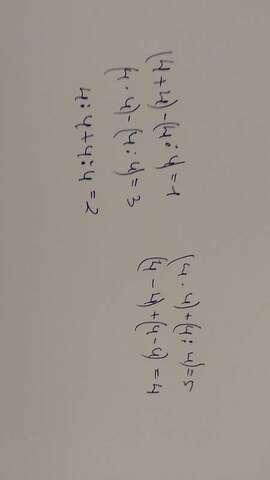 (4+4)-(4:4)=1
(4·4)-(4:4)=3
4:4+4:4=2
(4·4)+(4:4)=5
(4-4)+(4-4)=4